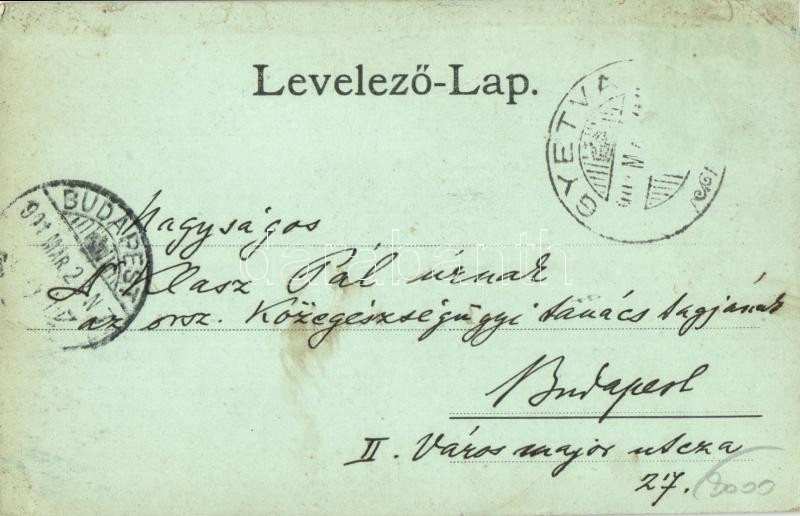 Levelező-Lap.
GYETVA
BUDAPEST
901 MÁR 2
Nagyságos
Klasz Pál úrnak
az orsz. Közegészségügyi tanács tagjának
Budapest
II. Városmajor utcza
27.
8000
darabanth